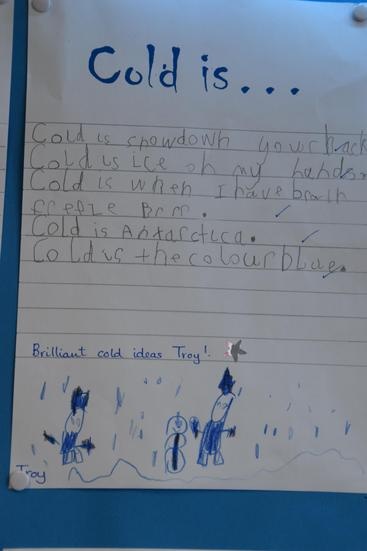 Cold is...
Cold is snowdown your back
Cold is ice on my hands
Cold is when I have brain
freeze Brrr.
Cold is Antarctica.
Cold is the colour blue.
Brilliant cold ideas Troy!
Troy